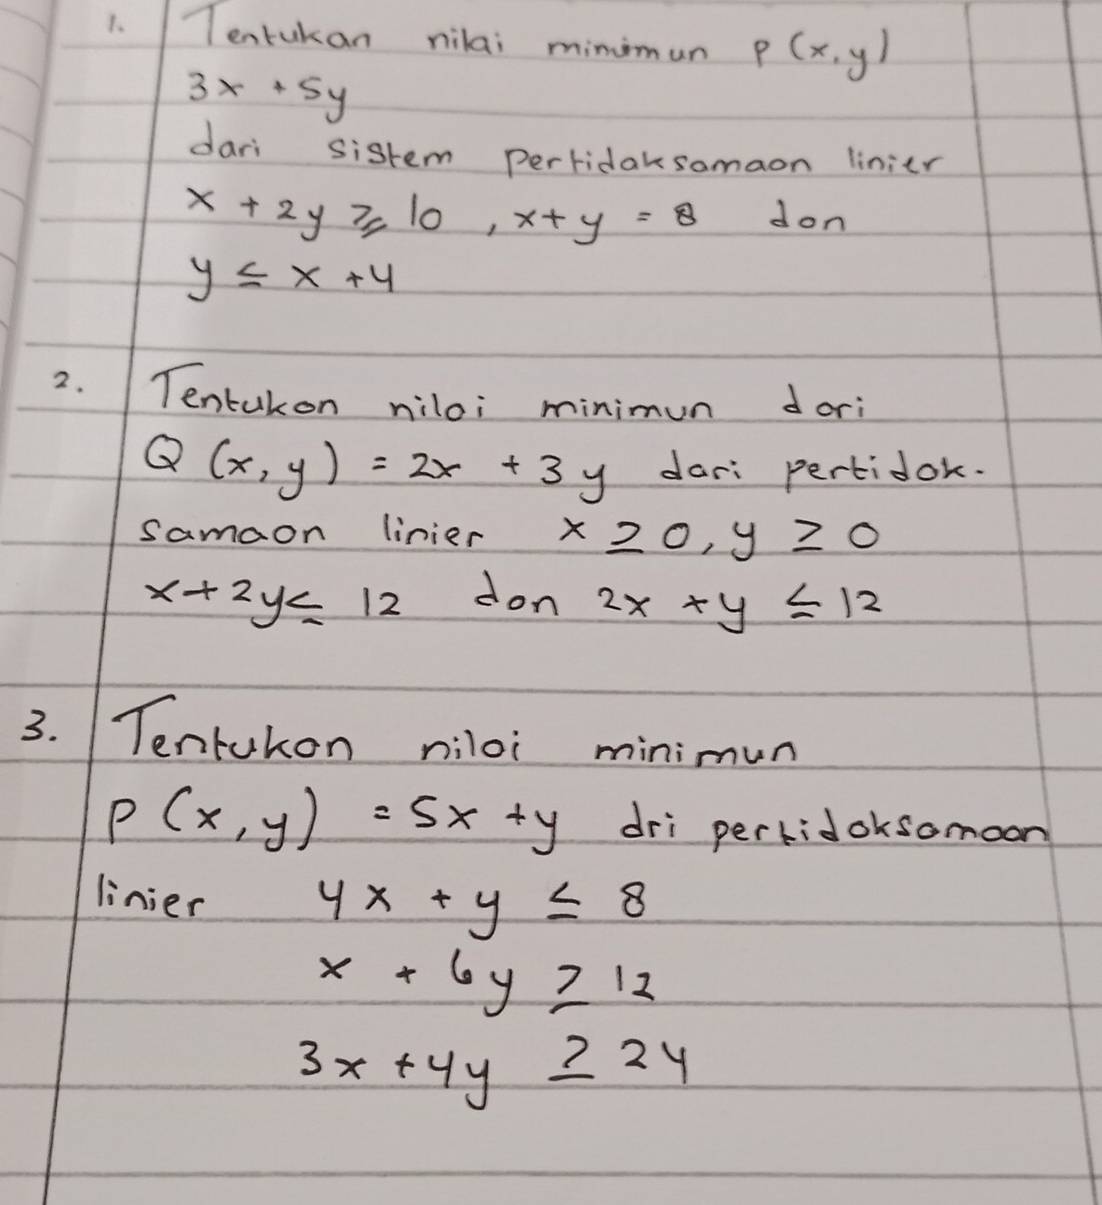 1. Tentukan nilai minimun P(x,y)
3x + 5y
dari sistem pertidaksamaon linier
x + 2y ≥ 10 , x+y = 8 don
y ≤ x + 4
2. Tentukon niloi minimun dori
Q (x, y) = 2x + 3y dari pertidok-
samaon linier x ≥ 0, y ≥ 0
x+2y ≤ 12 don 2x + y ≤ 12
3. Tentukon niloi minimun
P (x, y) = 5x + y dri pertidoksomoon
linier 4x + y ≤ 8
x + 6y ≥ 12
3x + 4y ≥ 24